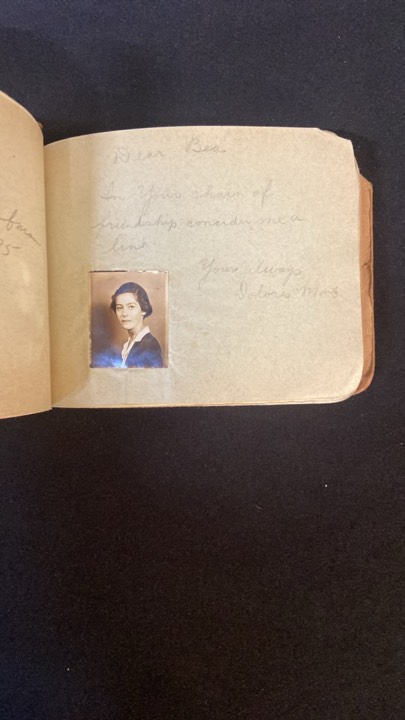 Dear Bea
In Your chain of
friendship consider me a
link
Yours always,
Dolores